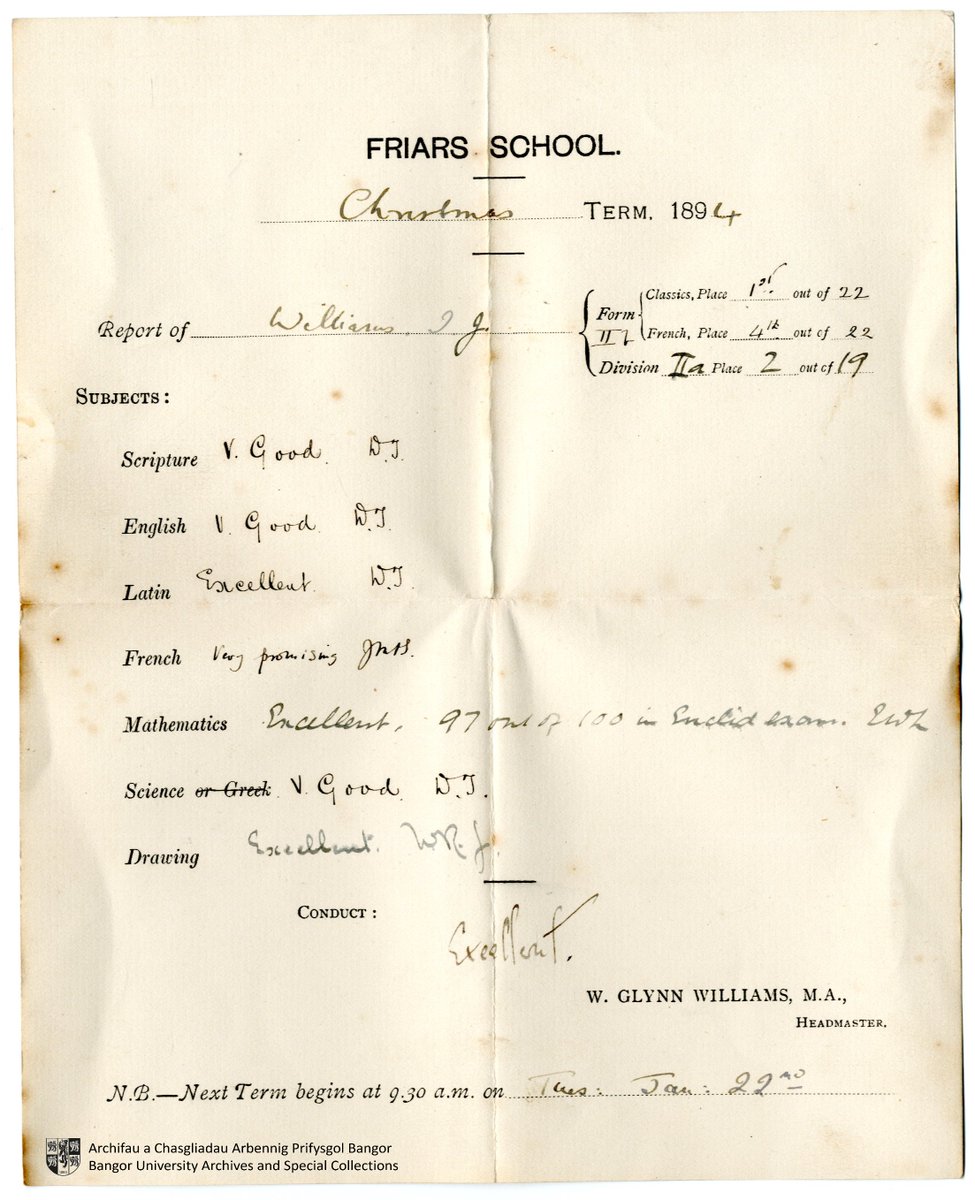 FRIARS SCHOOL.
Christmas TERM, 1894
Report of Williams. I J.
Form II
Classics, Place 1st. out of 22
French, Place 4th. out of 22
Division IIa Place 2 out of 19
SUBJECTS:
Scripture V. Good. D.J.
English V. Good. D.J.
Latin Excellent. D.J.
French Very promising
Mathematics Excellent. 97 out of 100 in Euclid exam. EWL
Science or Greek V. Good. D.J.
Drawing Excellent. W.R.J.
CONDUCT:
Excellent.
W. GLYNN WILLIAMS, M.A.,
HEADMASTER.
N.B.—Next Term begins at 9.30 a.m. on Tues: Jan: 22nd
Archifau a Chasgliadau Arbennig Prifysgol Bangor
Bangor University Archives and Special Collections